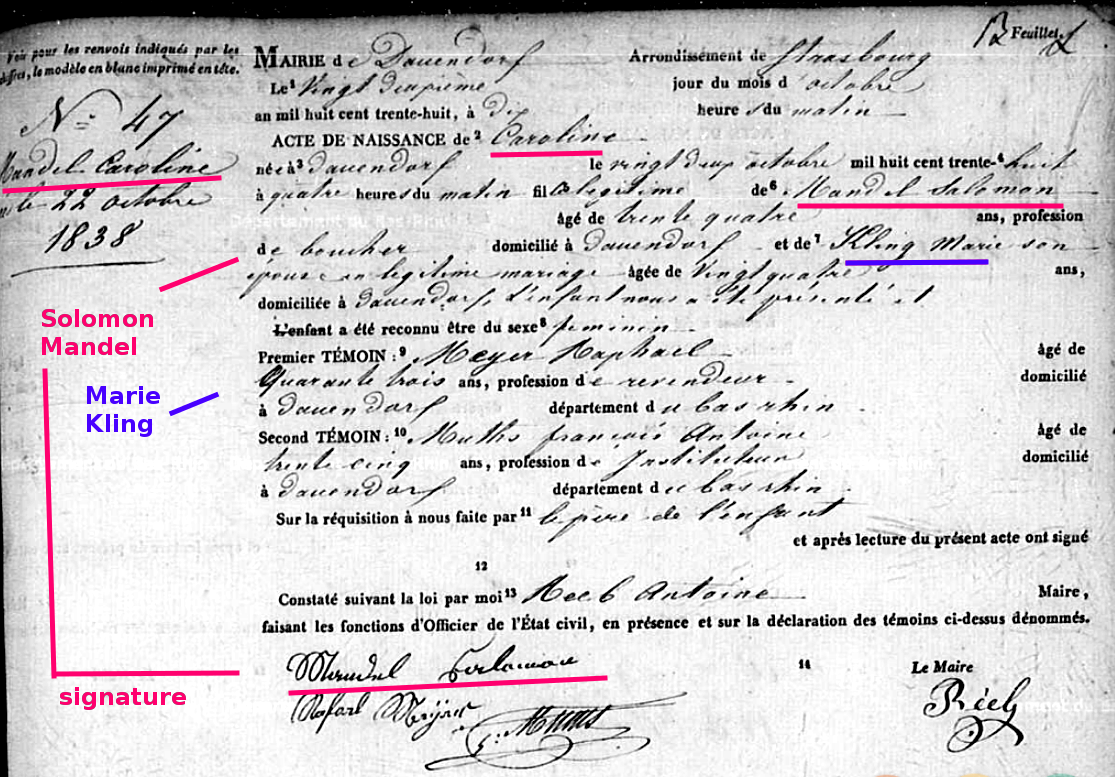 B Feuillet
Voir pour les renvois indiqués par les
chiffres, le modèle en blanc imprimé en tête.
MAIRIE de Dauendorf Arrondissement de Strasbourg
Le¹ Vingt deuxième jour du mois d'octobre
an mil huit cent trente-huit, à dix heures du matin
ACTE DE NAISSANCE de² Caroline
N° 47
Mandel Caroline
née à³ dauendorf le vingt deux octobre mil huit cent trente-⁴huit
22 octobre
1838
à quatre heures du matin fille légitime de⁶ Mandel Salomon
âgé de trente quatre ans, profession
de boucher domicilié à dauendorf et de⁷ Kling Marie son
épouse en légitime mariage âgée de Vingt quatre ans,
domiciliée à dauendorf, L'enfant nous a été présenté et
L'enfant a été reconnu être du sexe⁸ féminin
Premier TÉMOIN :⁹ Meyer Raphael âgé de
Quarante trois ans, profession de revendeur domicilié
à dauendorf département du bas rhin
Second TÉMOIN :¹⁰ Muths françois Antoine âgé de
trente cinq ans, profession de Instituteur domicilié
à dauendorf département du bas rhin
Sur la réquisition à nous faite par¹¹ le père de l'enfant
et après lecture du présent acte ont signé
12
Constaté suivant la loi par moi¹³ Reeb Antoine Maire,
faisant les fonctions d'Officier de l'État civil, en présence et sur la déclaration des témoins ci-dessus dénommés.
Mandel Salomon
14 Le Maire
Solomon
Mandel
Marie
Kling
signature